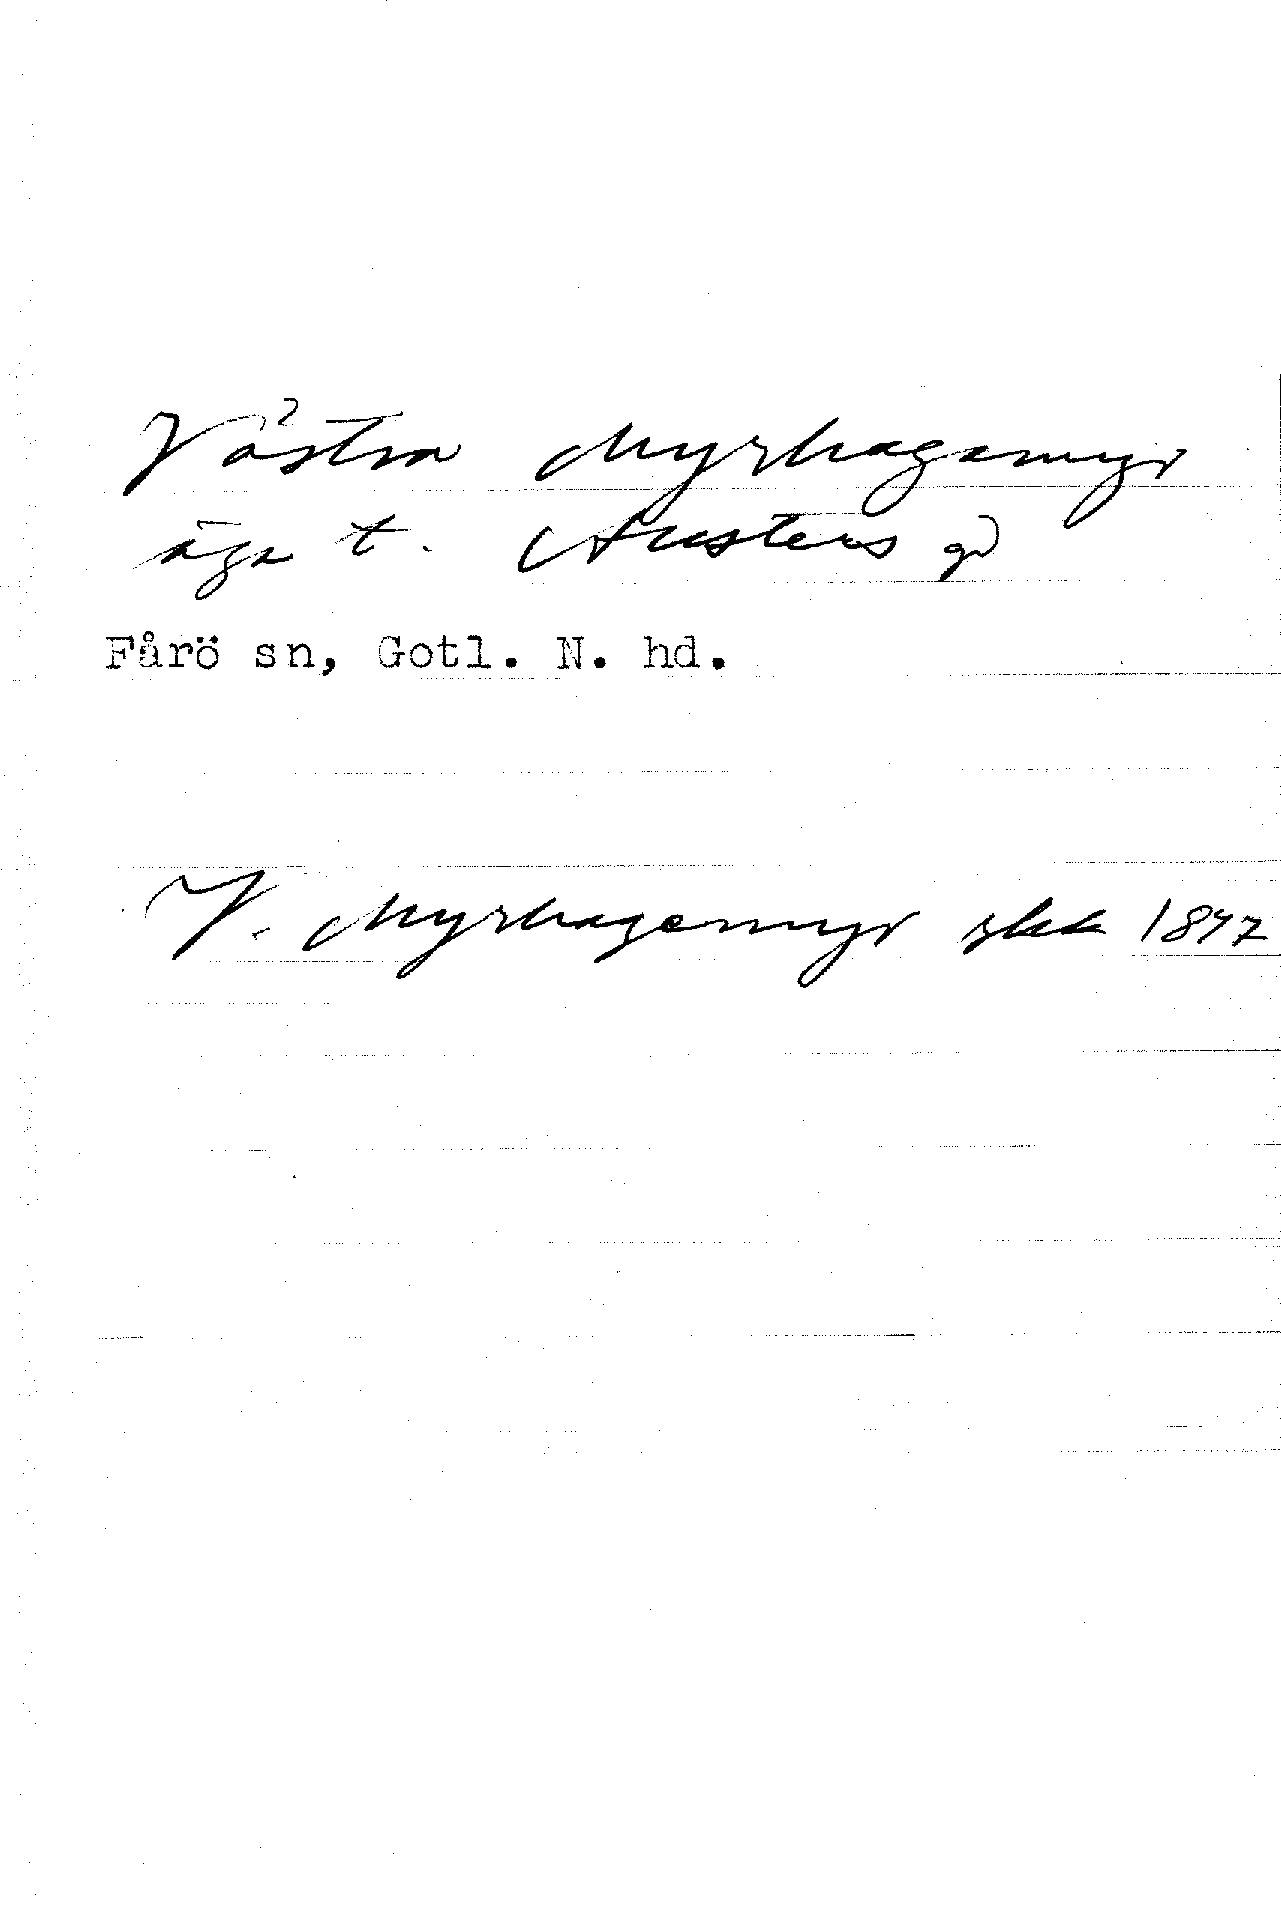 Västra Myrhagamyr
äga t. Austers gd
Fårö sn, Gotl. N. hd.
V. Myrhagemyr skk 1847